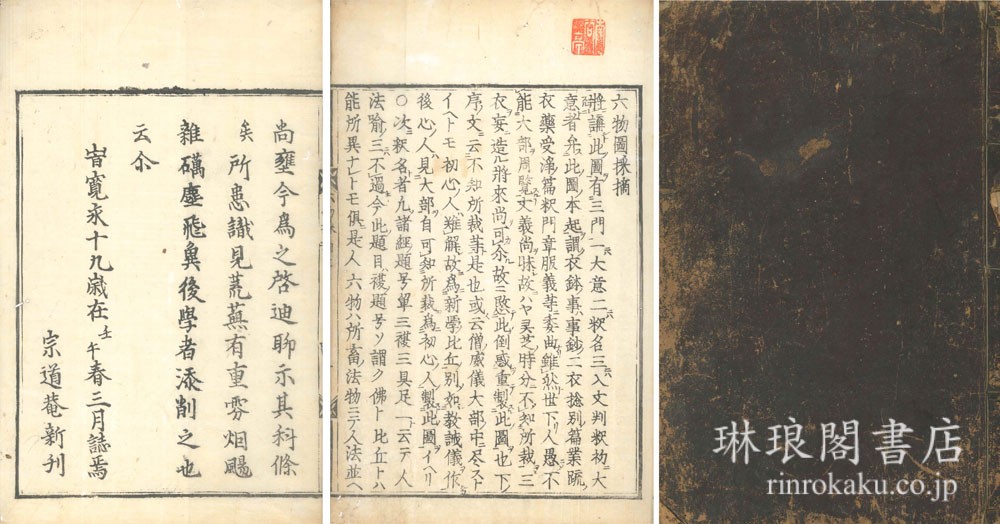 尚壅今為之啓迪聊示其科條
矣所恚識見荒蕪有重雰烟颺
雜礪塵飛兾後學者添削之也
云尒
旹寛永十九歳在壬午春三月誌焉
宗道菴新刊
六物圖採摘
將講此圖有三門一大意二釈名三入文判釈初大
意者允此圖本起謂衣鉢事事鈔二衣捴別篇業疏
衣藥受淨篇釈門章服義等委曲雖然世下人愚不
能大部周覧文義尚昧故ハヤ灵芝時分不知所裁三
衣妄造ル將來尚可余故ニ愍此倒惑重製此圖也下
序文云不知所裁等是也或云僧威儀大部中ニ尽ス
イヘトモ初心人難解故為新學比丘別如教誡儀作
後心人見大部自可知所裁為初心人製此圖イヘリ
〇次釈名者凡諸經題号單三複三具足一云テ人
法喩三不過今此題目複題号ソ謂ク佛ト比丘トハ
能所異ナレトモ俱是人六物ハ所畜法物ニテ人法並ヘ
琳琅閣書店
rinrokaku.co.jp